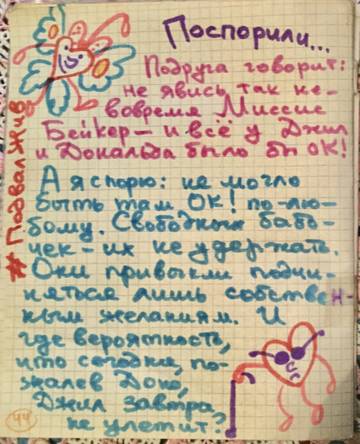 Поспорили...
Подруга говорит:
не явись так не-
вовремя Миссис
Бейкер – и всё у Джил
и Дональда было бы ОК!
А я спорю: не могло
быть там ОК! по-лю-
бому. Свободных бабо-
чек – их не удержать.
Они привыкли подчи-
няться лишь собствен-
ным желаниям. И
где вероятность,
что сегодня, по-
жалев Дона,
Джил завтра
не улетит?
#ПодвалЖив
44